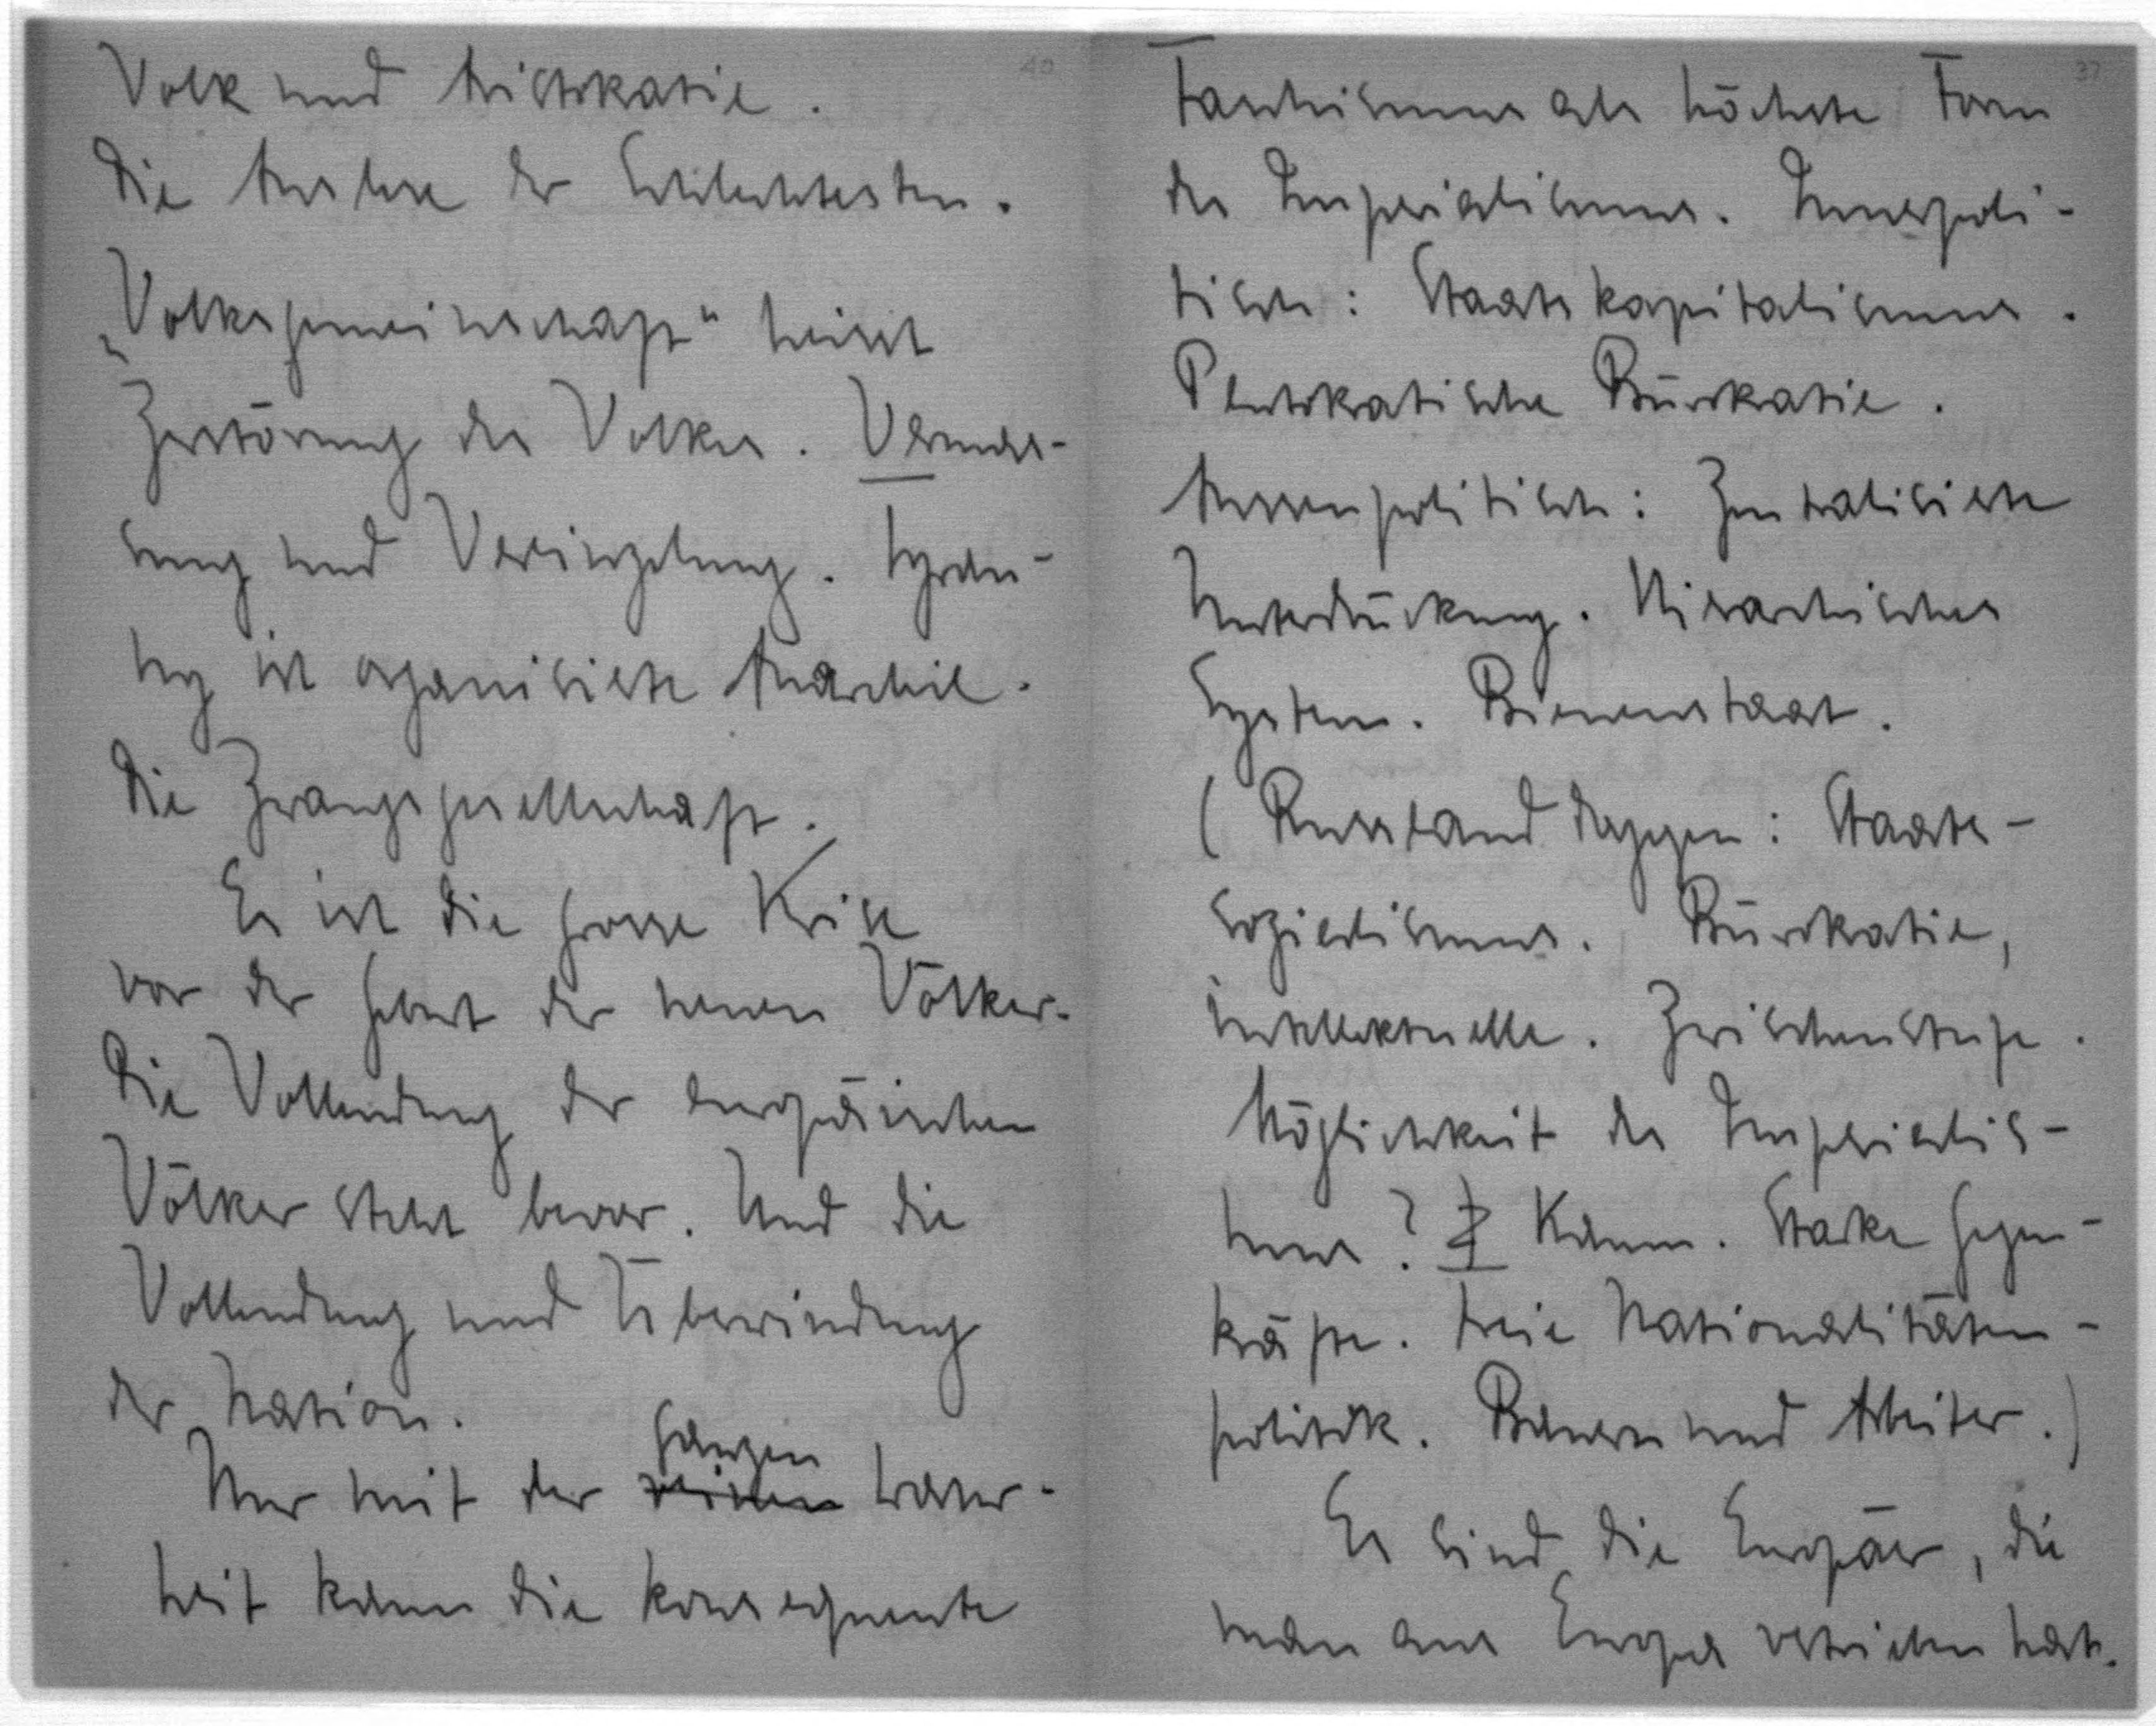 Volk und Aristokratie.
Die Auslese der Schlechtesten.
„Volksgemeinschaft" heisst
Zerstörung des Volkes. Vermas-
sung und Vereinzelung.
ist organisierte Anarchie.
Die Zwangsgesellschaft.
Es ist die grosse Krise
vor der Geburt der neuen Völker.
Die Vollendung der europäischen
Völker steht bevor. Und die
Vollendung und Überwindung
der Nation.
Nur mit der ganzen Wahr-
heit kann die konsequente
40
37
Faschismus als höchste Form
des Imperialismus. Innerpoli-
tisch: Staatskapitalismus.
Plutokratische Bürokratie.
Aussenpolitisch: Zentralisierte
Unterdrückung. Hierarchisches
System. Bienenstaat.
(Russland dagegen: Staats-
sozialismus. Bürokratie,
intellektuelle. Zwischenstufe.
Möglichkeit des Imperialis-
mus? Kaum. Starke Gegen-
kräfte. Freie Nationalitäten-
politik. Bauern und Arbeiter.)
Es sind die Europäer, die
man aus Europa vertrieben hat.